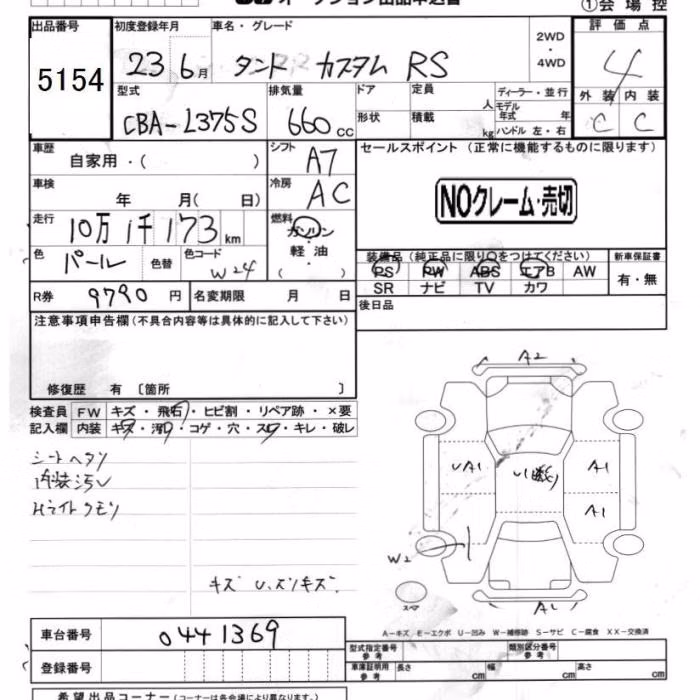 ①会場控
出品番号 初度登録年月 車名・グレード 評価点
5154 23 6月 タント カスタム RS 2WD・4WD 4
型式 排気量 ドア 定員 人 ディーラー・並行 外装 内装
CBA-L375S 660cc 形状 積載 kg モデル年式 年 ハンドル 左・右 C C
車歴 自家用・( ) シフト A7 セールスポイント (正常に機能するものに限ります)
車検 年 月( 日) 冷房 AC
NOクレーム・売切
走行 10万1千173km 燃料 ガソリン・軽油・( )
色 パール 色替 色コード W24
装備品 (純正品に限り○をつけてください) 新車保証書
PS PW ABS エアB AW 有・無
SR ナビ TV カワ
R券 9790円 名変期限 月 日 後日品
注意事項申告欄 (不具合内容等は具体的に記入して下さい)
修復歴 有 〔箇所 〕
検査員 FW キズ・飛石・ヒビ割・リペア跡・×要
記入欄 内装 キズ・汚れ・コゲ・穴・スレ・キレ・破レ
シートヘタリ
内装汚レ
Hライトクモリ
キズ U.スリキズ.
A2
UA1
A1
A1
W2
A1
スペア
A-キズ E-エクボ U-凹み W-補修跡 S-サビ C-腐食 XX-交換済
車台番号 0441369
型式指定番号 参考 類別区分番号 参考
登録番号
車庫証明用 参考 長さ cm 幅 cm 高さ cm
希望出品コーナー (コーナーは各会場により異なります。)